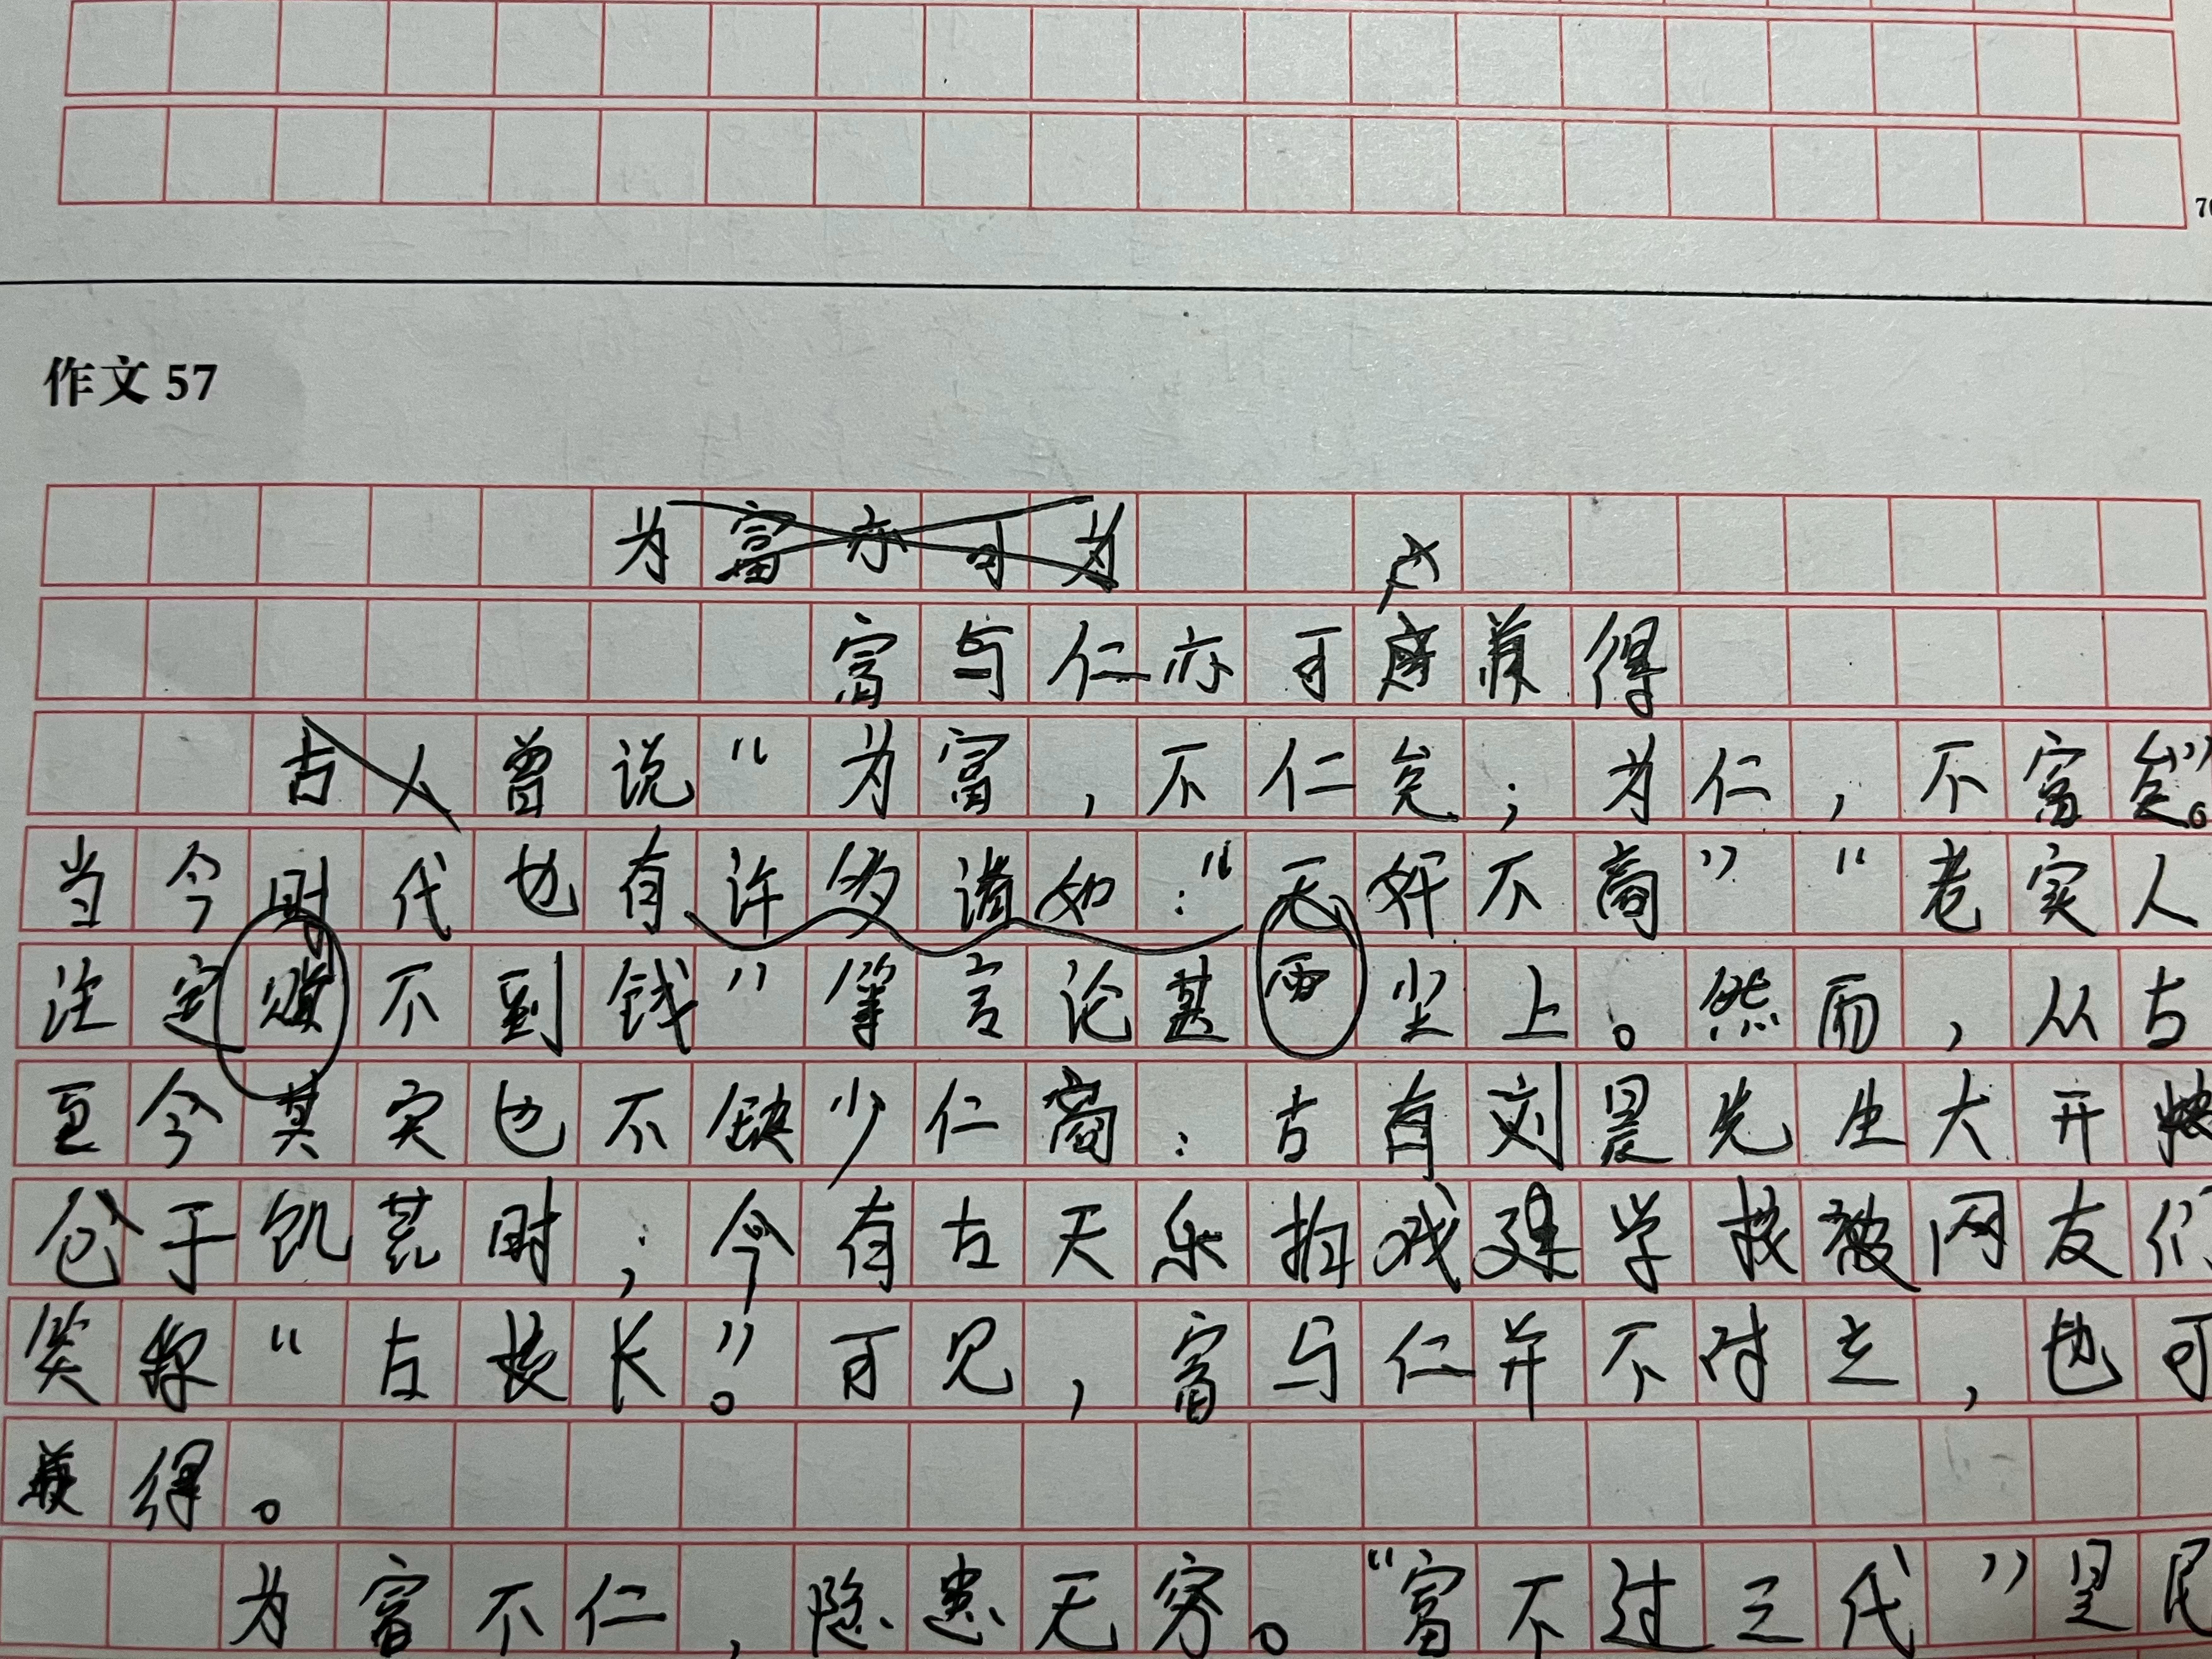 作文 57
为富亦可为
富与仁亦可兼得
古人曾说“为富,不仁矣;为仁,不富矣”。
当今时代也有许多诸如:“无奸不商”“老实人
注定赚不到钱”等言论甚嚣尘上。然而,从古
至今其实也不缺少仁商:古有刘晨先生大开
仓于饥荒时;今有古天乐拍戏建学校被网友们
笑称“古校长”。可见,富与仁并不对立,也可
兼得。
为富不仁,隐患无穷。“富不过三代”是民